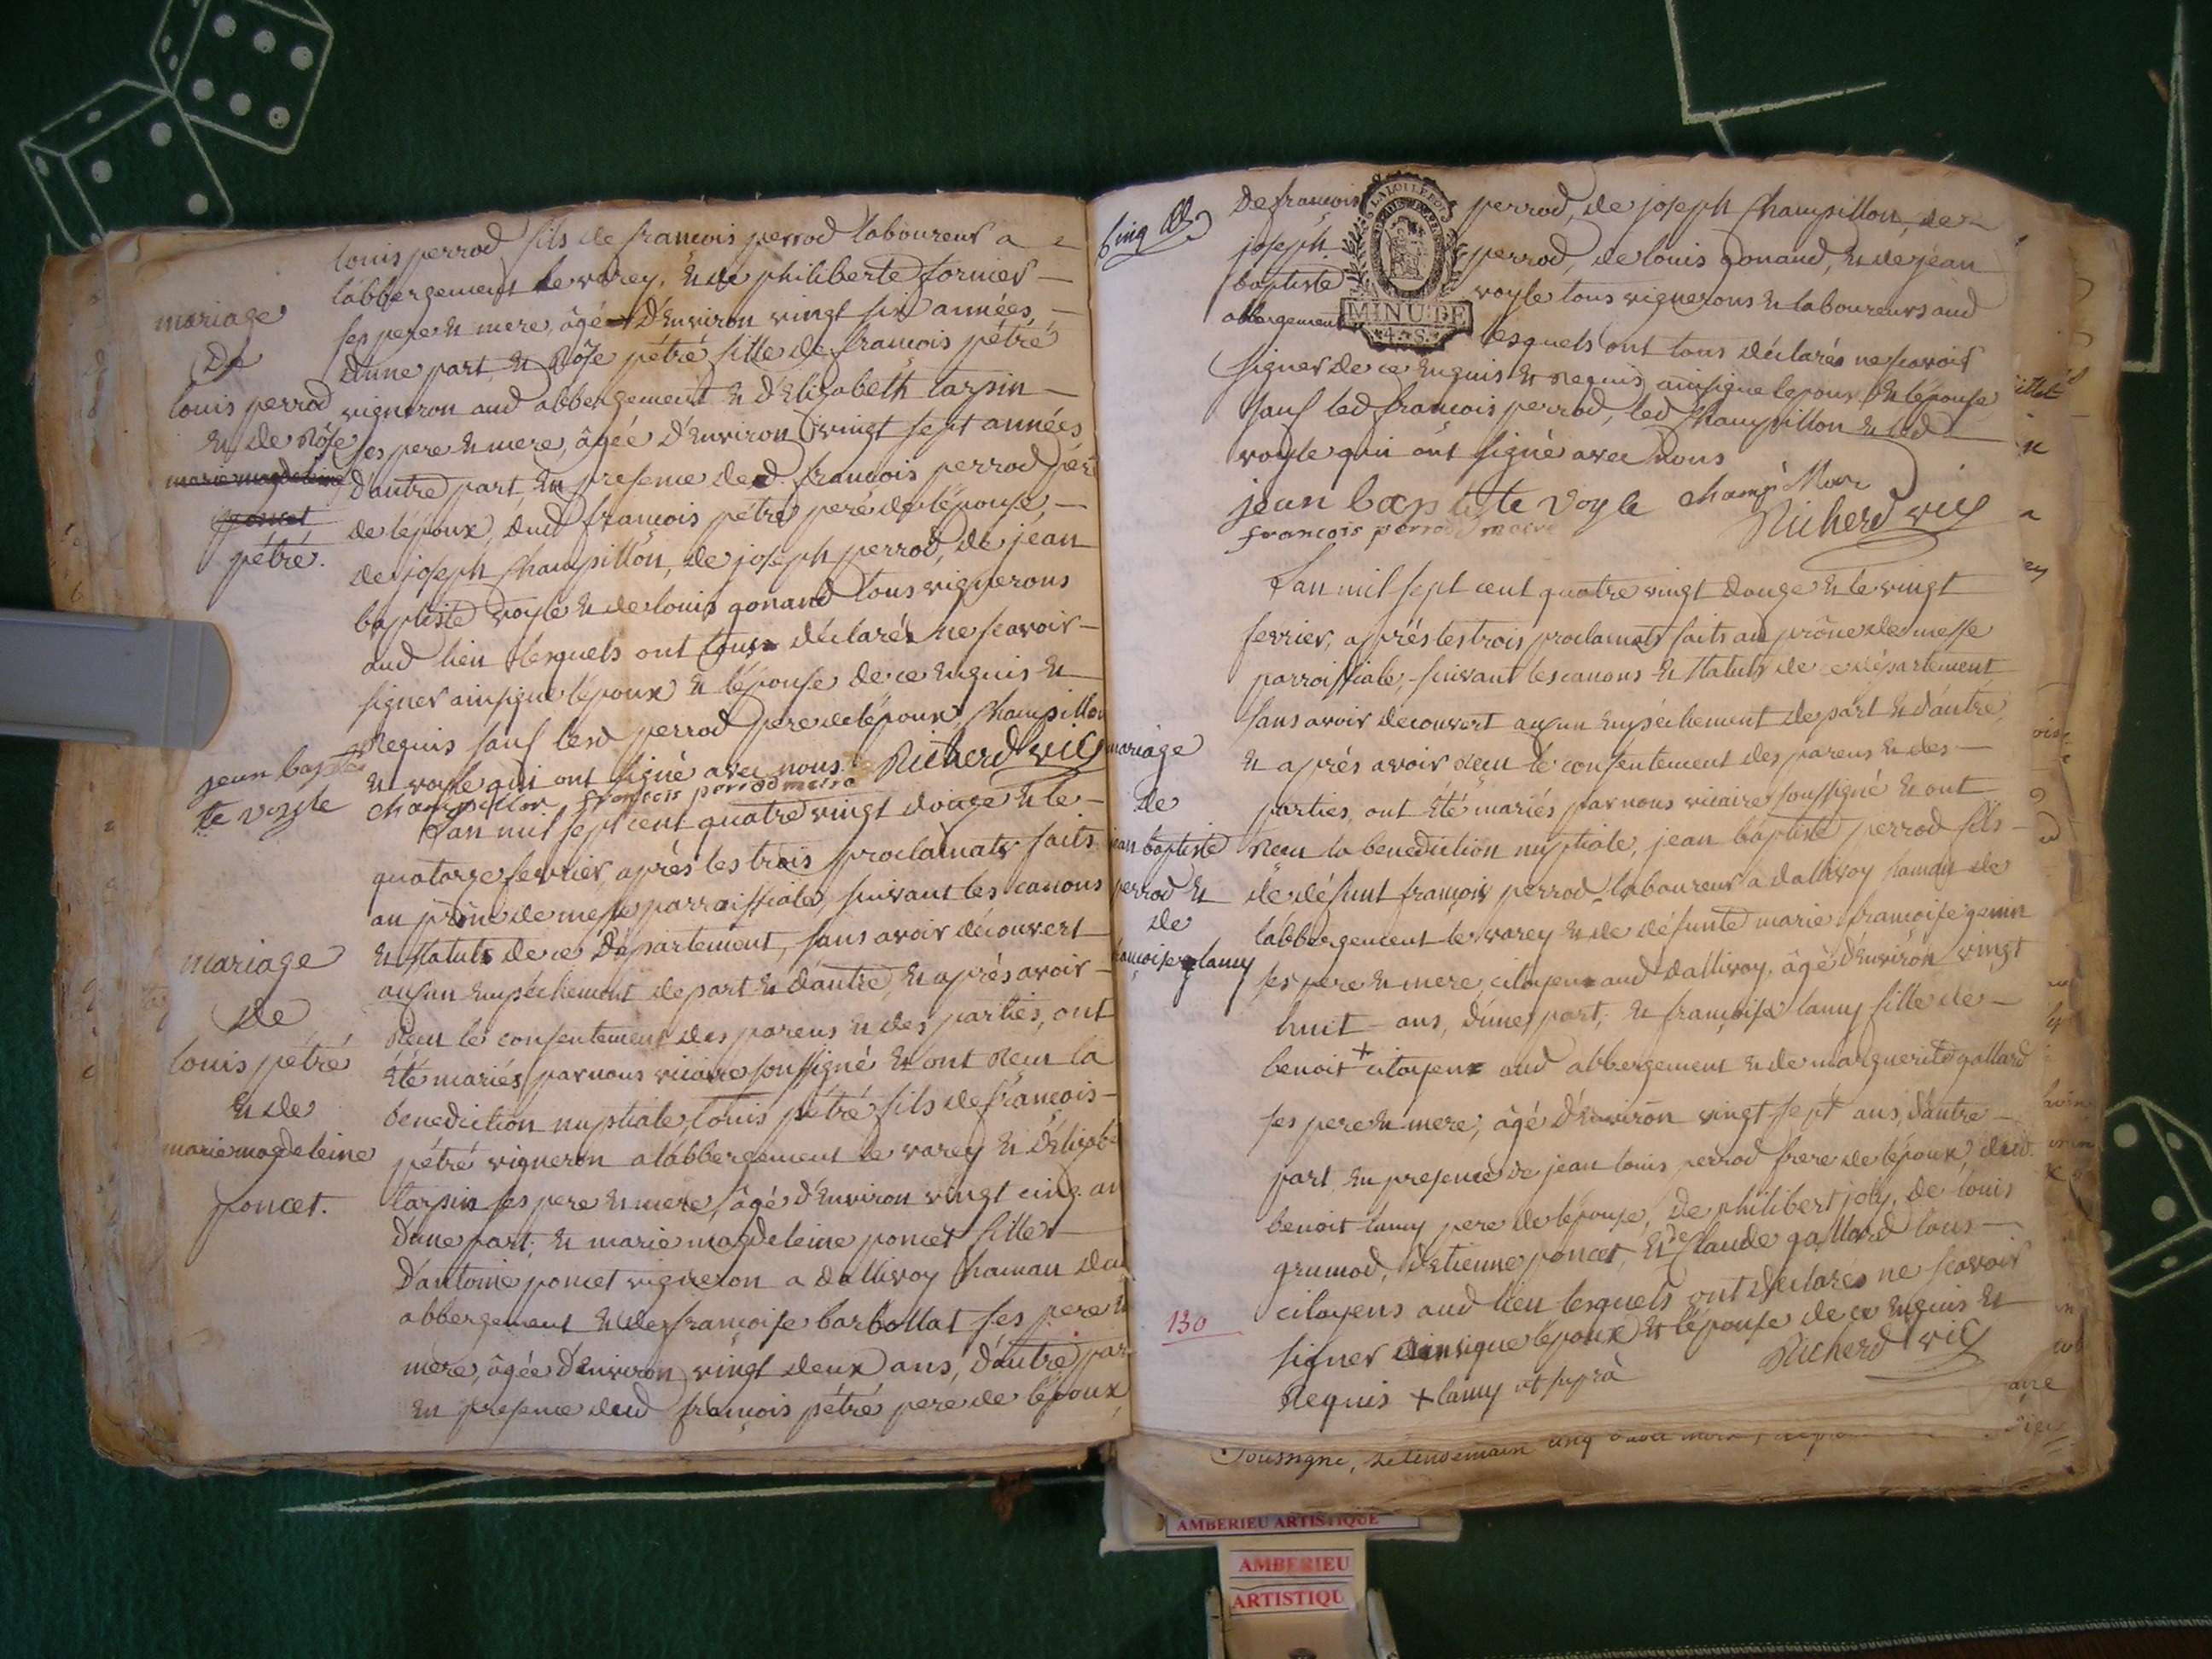 mariage
De
louis perrod
et de Rôse
marie magdeleine
poncet
pétré.
louis perrod fils de francois perrod laboureur a
labbergement le varey, et de philiberte fornier
ses pere et mere, âgé d'environ vingt six années,
dune part, et Rôse pétré fille de francois pétré
vigneron aud abbergement et d'Elizabeth tarpin
ses pere et mere, âgée d'environ vingt sept années
d'autre part, en presence dud. francois perrod pere
de lépoux, dud francois pétré pere de lépouse,
de joseph Champillon, de joseph perrod, de jean
baptiste voyle et de louis gonand tous vignerons
aud lieu lesquels ont tous déclarés ne scavoir
signer ainsique lépoux et lépouse de ce enquis et
Requis sauf lesd perrod pere de lépoux Champillon
et voyle qui ont signé avec nous. Richerd vic
jean baptis
te voyle
champillon francois perrod maire
mariage
De
louis pétré
et de
marie magdeleine
poncet.
Lan mil sept cent quatre vingt douze et le
quatorze fevrier, après les trois proclamats faits
au prône de messe parroissiale, suivant les canons
et statuts de ce Département, sans avoir découvert
aucun empéchement de part et d'autre, et après avoir
Recu le consentement des parens et des parties, ont
été mariés par nous vicaire soussigné et ont Recu la
benediction nuptiale, louis pétré fils de francois
pétré vigneron a labbergement le varey et d'Elizabe
tarpin ses pere et mere, âgé d'environ vingt cinq an
dune part; et marie magdeleine poncet fille
d'antoine poncet vigneron a dallivoy hamau du
abbergement et de francoise barbollat ses pere et
mere, âgée d'environ vingt deux ans, d'autre par
en presence dud francois pétré pere de lépoux,
cinq
De francois perrod, de joseph Champillon, de
joseph perrod, de louis gonand, et de jean
baptiste voyle tous vignerons et laboureurs aud
abbergement lesquels ont tous déclarés ne scavoir
LA LOI LE ROI
MINU. DE
4. S.
signer de ce enquis et Requis ainsique lepoux et lépouse
sauf led francois perrod, led Champillon et led
voyle qui ont signé avec nous
jean baptiste voyle
francois perrod maire
Richerd vic
mariage
de
jean baptiste
perrod et
de
francoise lamy
Lan mil sept cent quatre vingt douze et le vingt
fevrier, après les trois proclamats faits au prône de messe
parroissiale, suivant les canons et statuts de ce département
sans avoir decouvert aucun empéchement de part et d'autre,
et après avoir Recu le consentement des parens et des
parties, ont été mariés par nous vicaire soussigné et ont
Recu la benediction nuptiale, jean baptiste perrod fils
de défunt francois perrod laboureur a dallivoy hamau de
labbergement le varey et de défunte marie francoise genin
ses pere et mere, citoyen aud dallivoy, âgé d'environ vingt
huit ans, d'une part; et francoise lamy fille de
benoit + citoyen aud abbergement et de marguerite gallard
ses pere et mere, âgé d'environ vingt sept ans, d'autre
part, en presence de jean louis perrod frere de lépoux, dud.
benoit lamy pere de lépouse, de philibert joly, de louis
grumod, d'etienne poncet, et de claude gallard tous
citoyens aud lieu lesquels ont déclarés ne scavoir
signer ainsique lépoux et lépouse de ce enquis et
Requis + lamy ut suprà
Richerd vic
130
Soussigné, le lendemain cinq
AMBERIEU ARTISTIQUE
AMBERIEU
ARTISTIQU